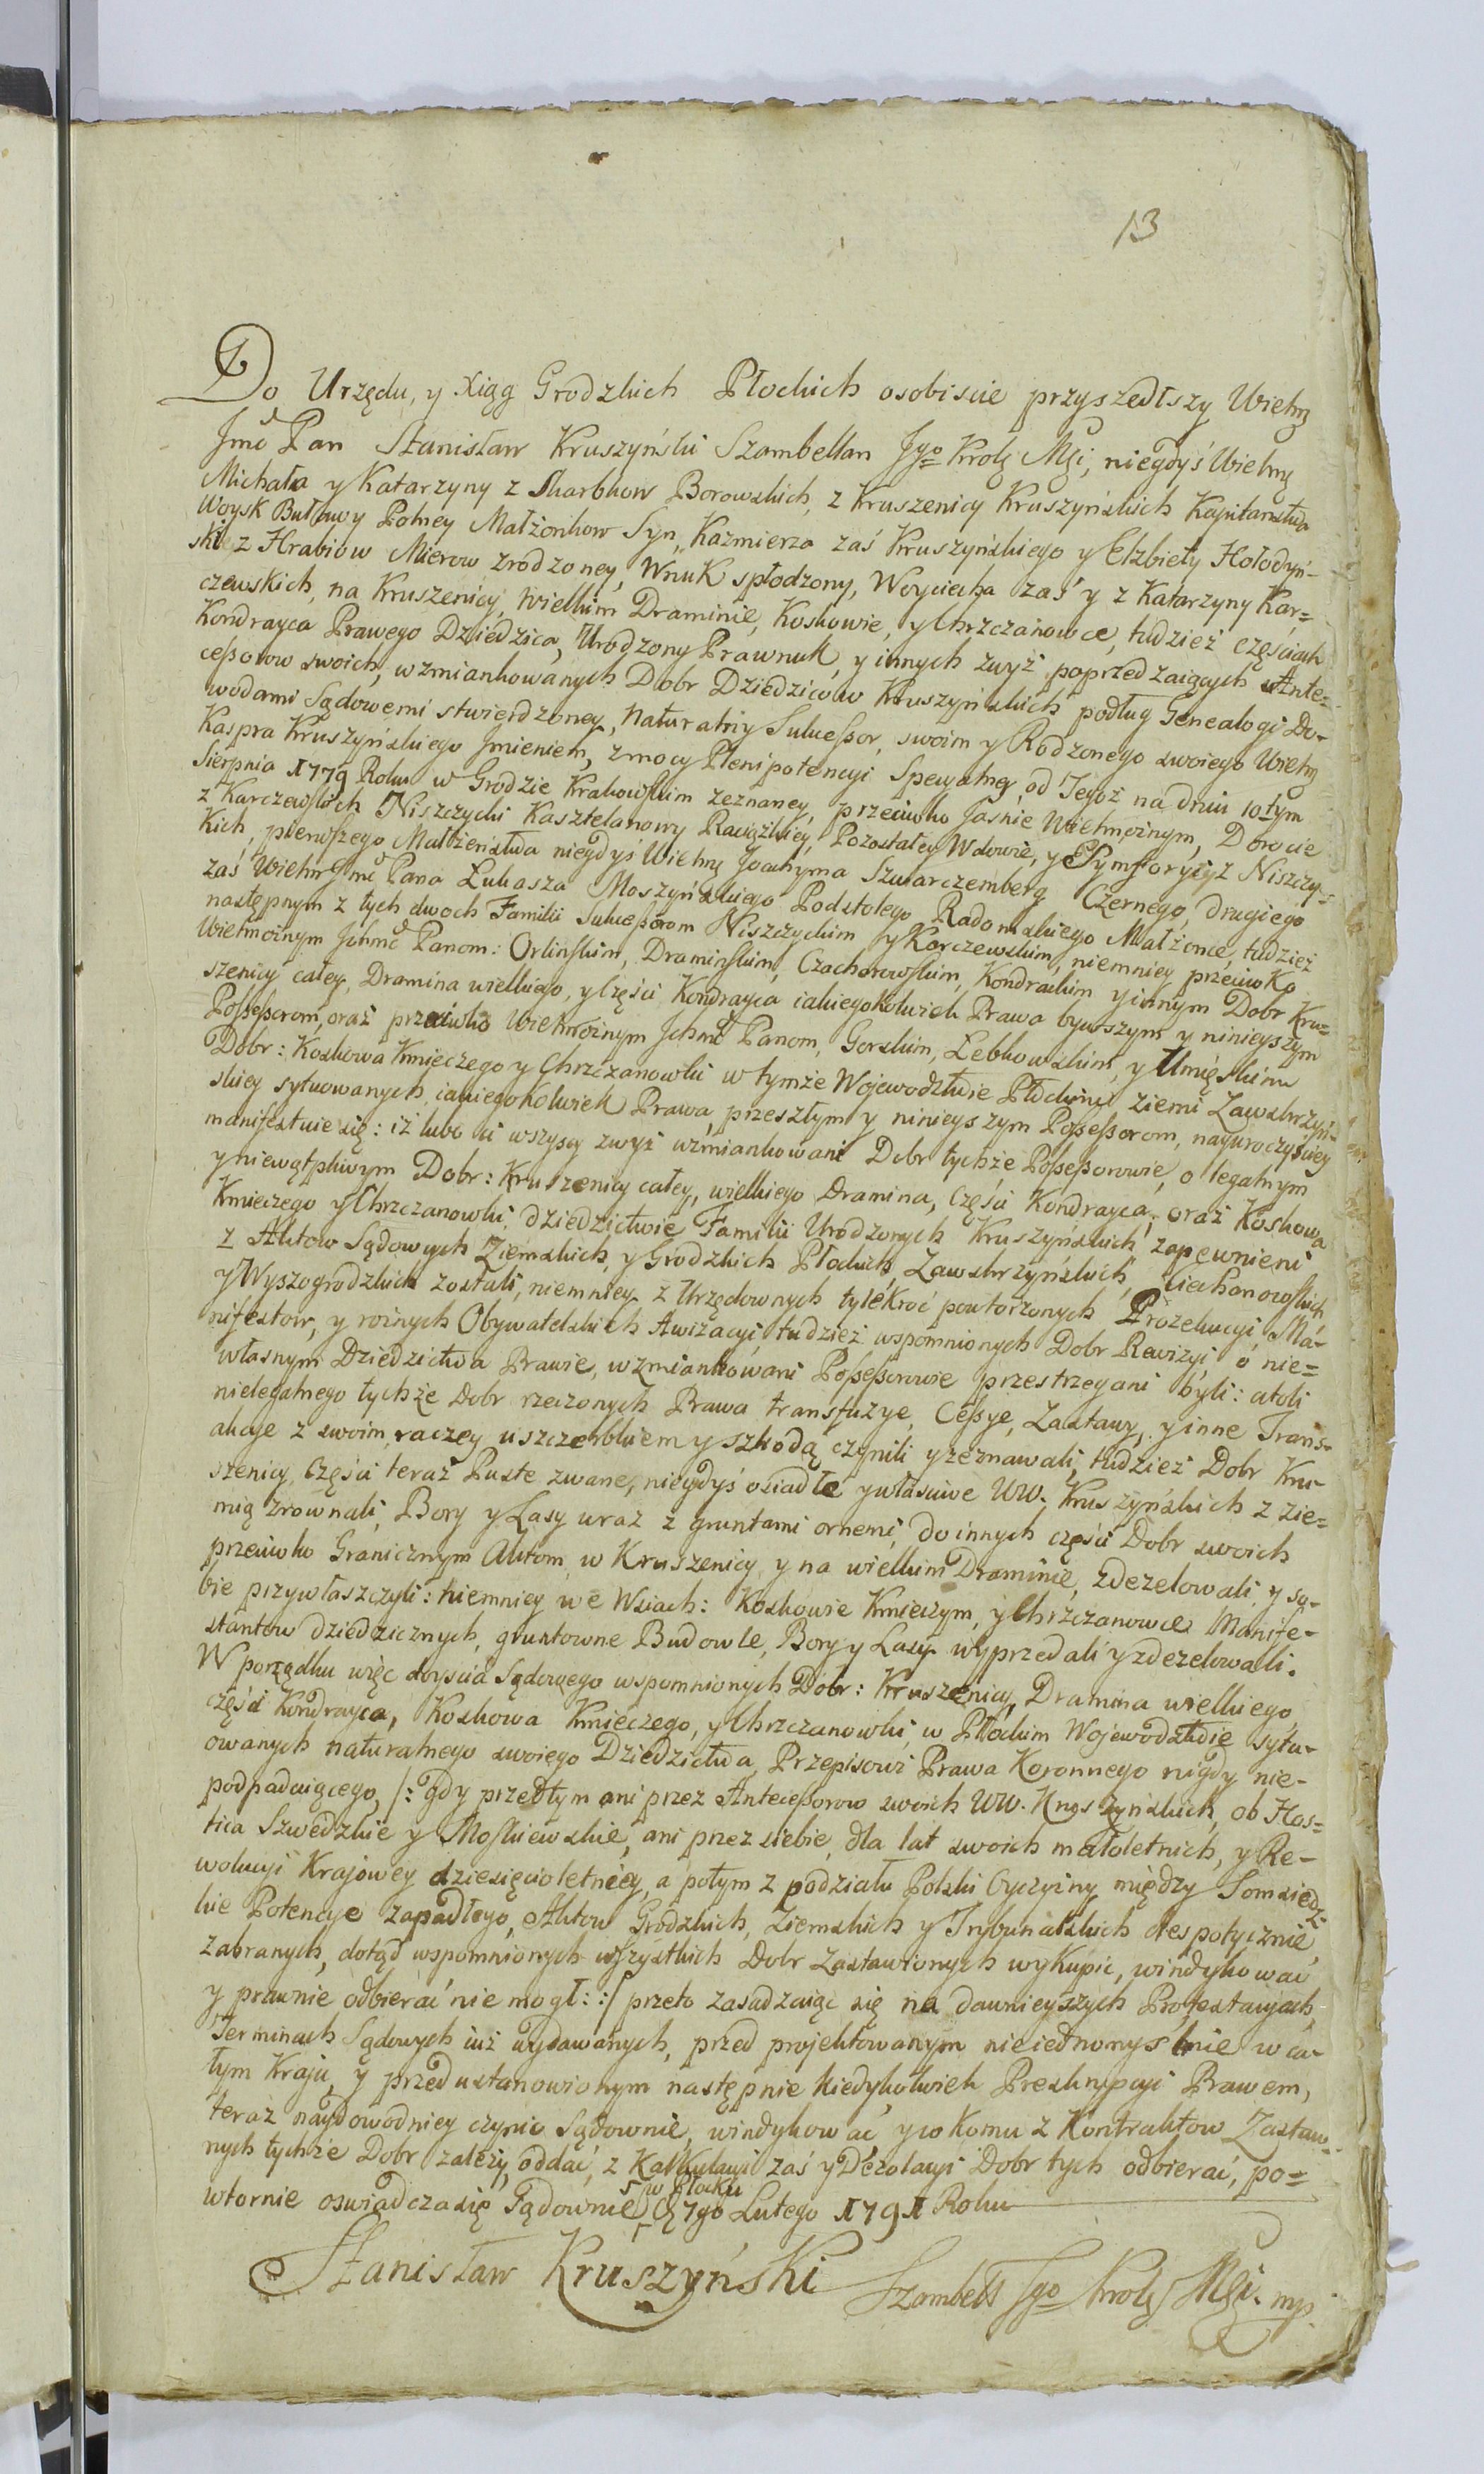 13
Do Urzędu, y Xiąg Grodzkich Płockich osobiscie przyszedłszy Wielm͠y
Jmć Pan Stanisław Kruszyński Szambellan Jgo Krolẹ Mẹi, niegdyś Wielmẹ
Michała y Katarzyny z Skarbkow Borowskich, z Kruszenicy Kruszyńskich Kapitanstwa
Woysk Buławy Polney Małżonkow Syn, Kazmierza zaś Kruszyńskiego y Elzbiety Hołodyń-
ski z Hrabiow Mierow zrodzoney, Wnuk spłodzony, Woyciecha zaś y z Katarzyny Kar=
czewskich, na Kruszenicy, Wielkim Draminie, Koskowie, y Chrzczanowce, tudzież częściach
Kondrayca Prawego Dziedzica, Urodzony Prawnuk, y innych zwyż poprzedzaiących Ante=
ceßorow swoich, wzmiankowanych Dobr Dziedzicow Kruszyńskich podług Genealogi Do-
wodami Sądowemi stwierdzoney, Naturalny Sukceßor, swoim y Rodzonego swoiego Wielmẹ
Kaspra Kruszyńskiego Jmieniem, z mocy Plenipotencyi Specyalney, od Tegoż na dniu 10tym
Sierpnia 1779 Roku w Grodzie Krakowskim zeznaney, przeciwko Jaśnie Wielmożnym, Dorocie
z Karczewskich Niszczycki Kasztelanowy Raciązkiey, Pozostałey Wdowie, y Symforyi z Niszczy=
kich, pierwszego Małżeństwa niegdyś Wielmẹ Joachyma Szwarczemberg Czernego, drugiego
zaś Wielmẹ Jmć Pana Łukasza Moszyńskiego Podstolego Radomskiego Małżonce, tudzież
następnym z tych dwoch Familii Sukceßorom Niszczyckim y Karczewskim, niemniey przeciwko
Wielmożnym Jchmć Panom: Orlinskim, Draminskim, Czachorowskim, Kondrackim y innym Dobr Kru=
szenicy całey, Dramina wielkiego, y Części Kondrayca iakiegokolwiek Prawa bywszym y ninieyszym
Poßeßorom, oraz przeciwko Wielmożnym Jchmć Panom, Gorskim, Łebkowskim, y Umięskim
Dobr: Koskowa Kmieczego y Chrzczanowki w tymże Wojewodztwie Płockim ziemi Zawskrzyń-
skiey sytuowanych, iakiegokolwiek Prawa, przeszłym y ninieyszym Poßeßorom, nayuroczyściey
manifestuie się: iż lubo ci wszyscy zwyż wzmiankowani Dobr tychże Poßeßorowie, o legalnym
y niewątpliwym Dobr: Kruszenicy całey, wielkiego Dramina, Części Kondrayca, oraz Koskowa
Kmieczego y Chrzczanowki, dziedzictwie Familii Urodzonych Kruszyńskich, zapewnieni
z Aktow Sądowych Ziemskich, y Grodzkich Płockich, Zawskrzyńskich, Ciechanowskich
y Wyszogrodzkich zostali, niemniey z Urzędownych tylekroć powtorzonych Prozekucyi Ma-
nifestow, y roznych Obywatelskich Awizacyi, tudzież wspomnionych Dobr Rewizyi o nie=
własnym Dziedzictwa Prawie, wzmiankowani Poßeßorowie przestrzegani byli: atoli
nielegalnego tychże Dobr rzeczonych Prawa transfuzye, Ceßye, Zastawy, y inne Trans-
akcye z swoim raczey uszczerbkiem y szkodą czynili y zeznawali, tudzież Dobr Kru-
szenicy, Części teraz Puste zwane, niegdyś osiadłe y własciwe UW. Kruszyńskich z zie=
mią zrownali, Bory y Lasy wraz z gruntami ornemi, do innych części Dobr swoich
przeciwko Granicznym Aktom, w Kruszenicy, y na wielkim Draminie, zdezelowali, y so-
bie przywłaszczyli: niemniey we Wsiach: Koskowie Kmieczym, y Chrzczanowce Manife-
stantow dziedzicznych, gruntowne Budowle, Bory y Lasy wyprzedali y zdezelowali.
W porządku więc doyscia Sądowego wspomnionych Dobr: Kruszenicy, Dramina wielkiego
części Kondrayca, Koskowa Kmieczego, y Chrzczanowki, w Płockim Wojewodztwie sytu-
owanych naturalnego swoiego Dziedzictwa, Przepisowi Prawa Koronnego nigdy nie-
podpadaiącego, /: gdy przedtym ani przez Anteceßorow swoich WW. Kruszyńskich, ob Hos=
tica Szwedzkie y Moskiewskie, ani przez siebie, dla lat swoich małoletnich, y Re-
wolucyi Krajowey dziesięcioletniey, a potym z podziału Polski Oyczyzny między Somsiedz-
kie Potencye zapadłego, Aktow Grodzkich, Ziemskich y Trybunalskich despotycznie
zabranych, dotąd wspomnionych wszystkich Dobr Zastawionych wykupić, windykować
y prawnie odbierać nie mogł: :/ przeto zasadzaiąc się na dawnieyszych Protestacyach,
Terminach Sądowych iuż wydawanych, przed projektowanym nieiednomyslnie w ca-
łym Kraju, y przed ustanowionym następnie kiedykolwiek Preskrypcyi Prawem,
teraz naydowodniey czynić Sądownie, windykować y co komu z Kontraktow Zastaw=
nych tychże Dobr zależy, oddać, z Kalkulacyi zaś y Dezolacyi Dobr tych odbierać, po=
wtornie oswiadcza się Sądownie w Płocku D. 7go Lutego 1791 Roku
Stanisław Kruszyński Szambell Jgo Krolẹ Mẹi. mp